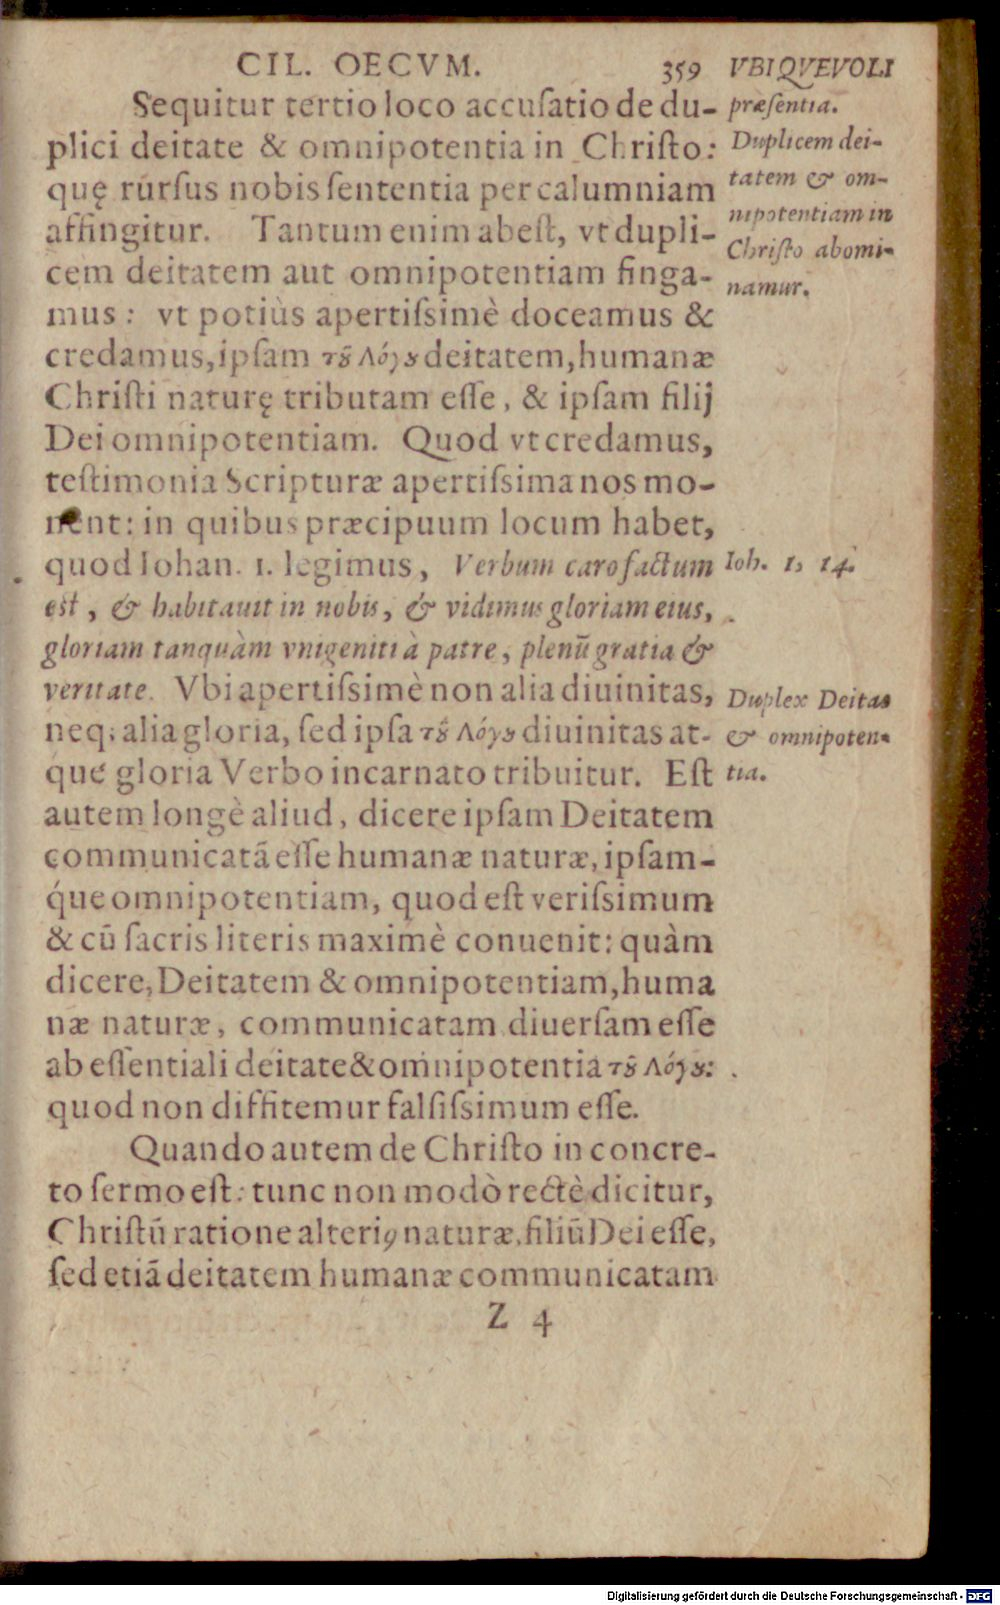 CIL. OECVM. 359 VBIQVEVOLI
Sequitur tertio loco accuſatio de du-
plici deitate & omnipotentia in Chriſto:
quę rùrſus nobis ſententia per calumniam
affingitur. Tantum enim abeſt, vt dupli-
cem deitatem aut omnipotentiam finga-
mus: vt potiùs apertiſsimè doceamus &
credamus, ipſam τȣ͂ Λόγȣ deitatem, humanæ
Chriſti naturę tributam eſſe, & ipſam filij
Dei omnipotentiam. Quod vt credamus,
teſtimonia Scripturæ apertiſsima nos mo-
nent: in quibus præcipuum locum habet,
quod Iohan. 1. legimus, Verbum caro factum
est, & habitauit in nobis, & vidimus gloriam eius,
gloriam tanquàm vnigeniti à patre, plenũ gratia &
veritate. Vbi apertiſsimè non alia diuinitas,
neq; alia gloria, ſed ipſa τȣ͂ Λόγȣ diuinitas at-
que gloria Verbo incarnato tribuitur. Eſt
autem longè aliud, dicere ipſam Deitatem
communicatã eſſe humanæ naturæ, ipſam-
q́ue omnipotentiam, quod eſt veriſsimum
& cũ ſacris literis maximè conuenit: quàm
dicere, Deitatem & omnipotentiam, huma
næ naturæ, communicatam diuerſam eſſe
ab eſſentiali deitate & omnipotentia τȣ͂ Λόγȣ:
quod non diffitemur falſiſsimum eſſe.
Quando autem de Chriſto in concre-
to ſermo eſt: tunc non modò rectè dicitur,
Chriſtũ ratione alteriꝰ naturæ, filiũ Dei eſſe,
ſed etiã deitatem humanæ communicatam
Z 4
præſentia.
Duplicem dei-
tatem & om-
nipotentiam in
Chriſto abomi-
namur.
Ioh. 1, 14.
Duplex Deitas
& omnipoten-
tia.
Digitalisierung gefördert durch die Deutsche Forschungsgemeinschaft - DFG